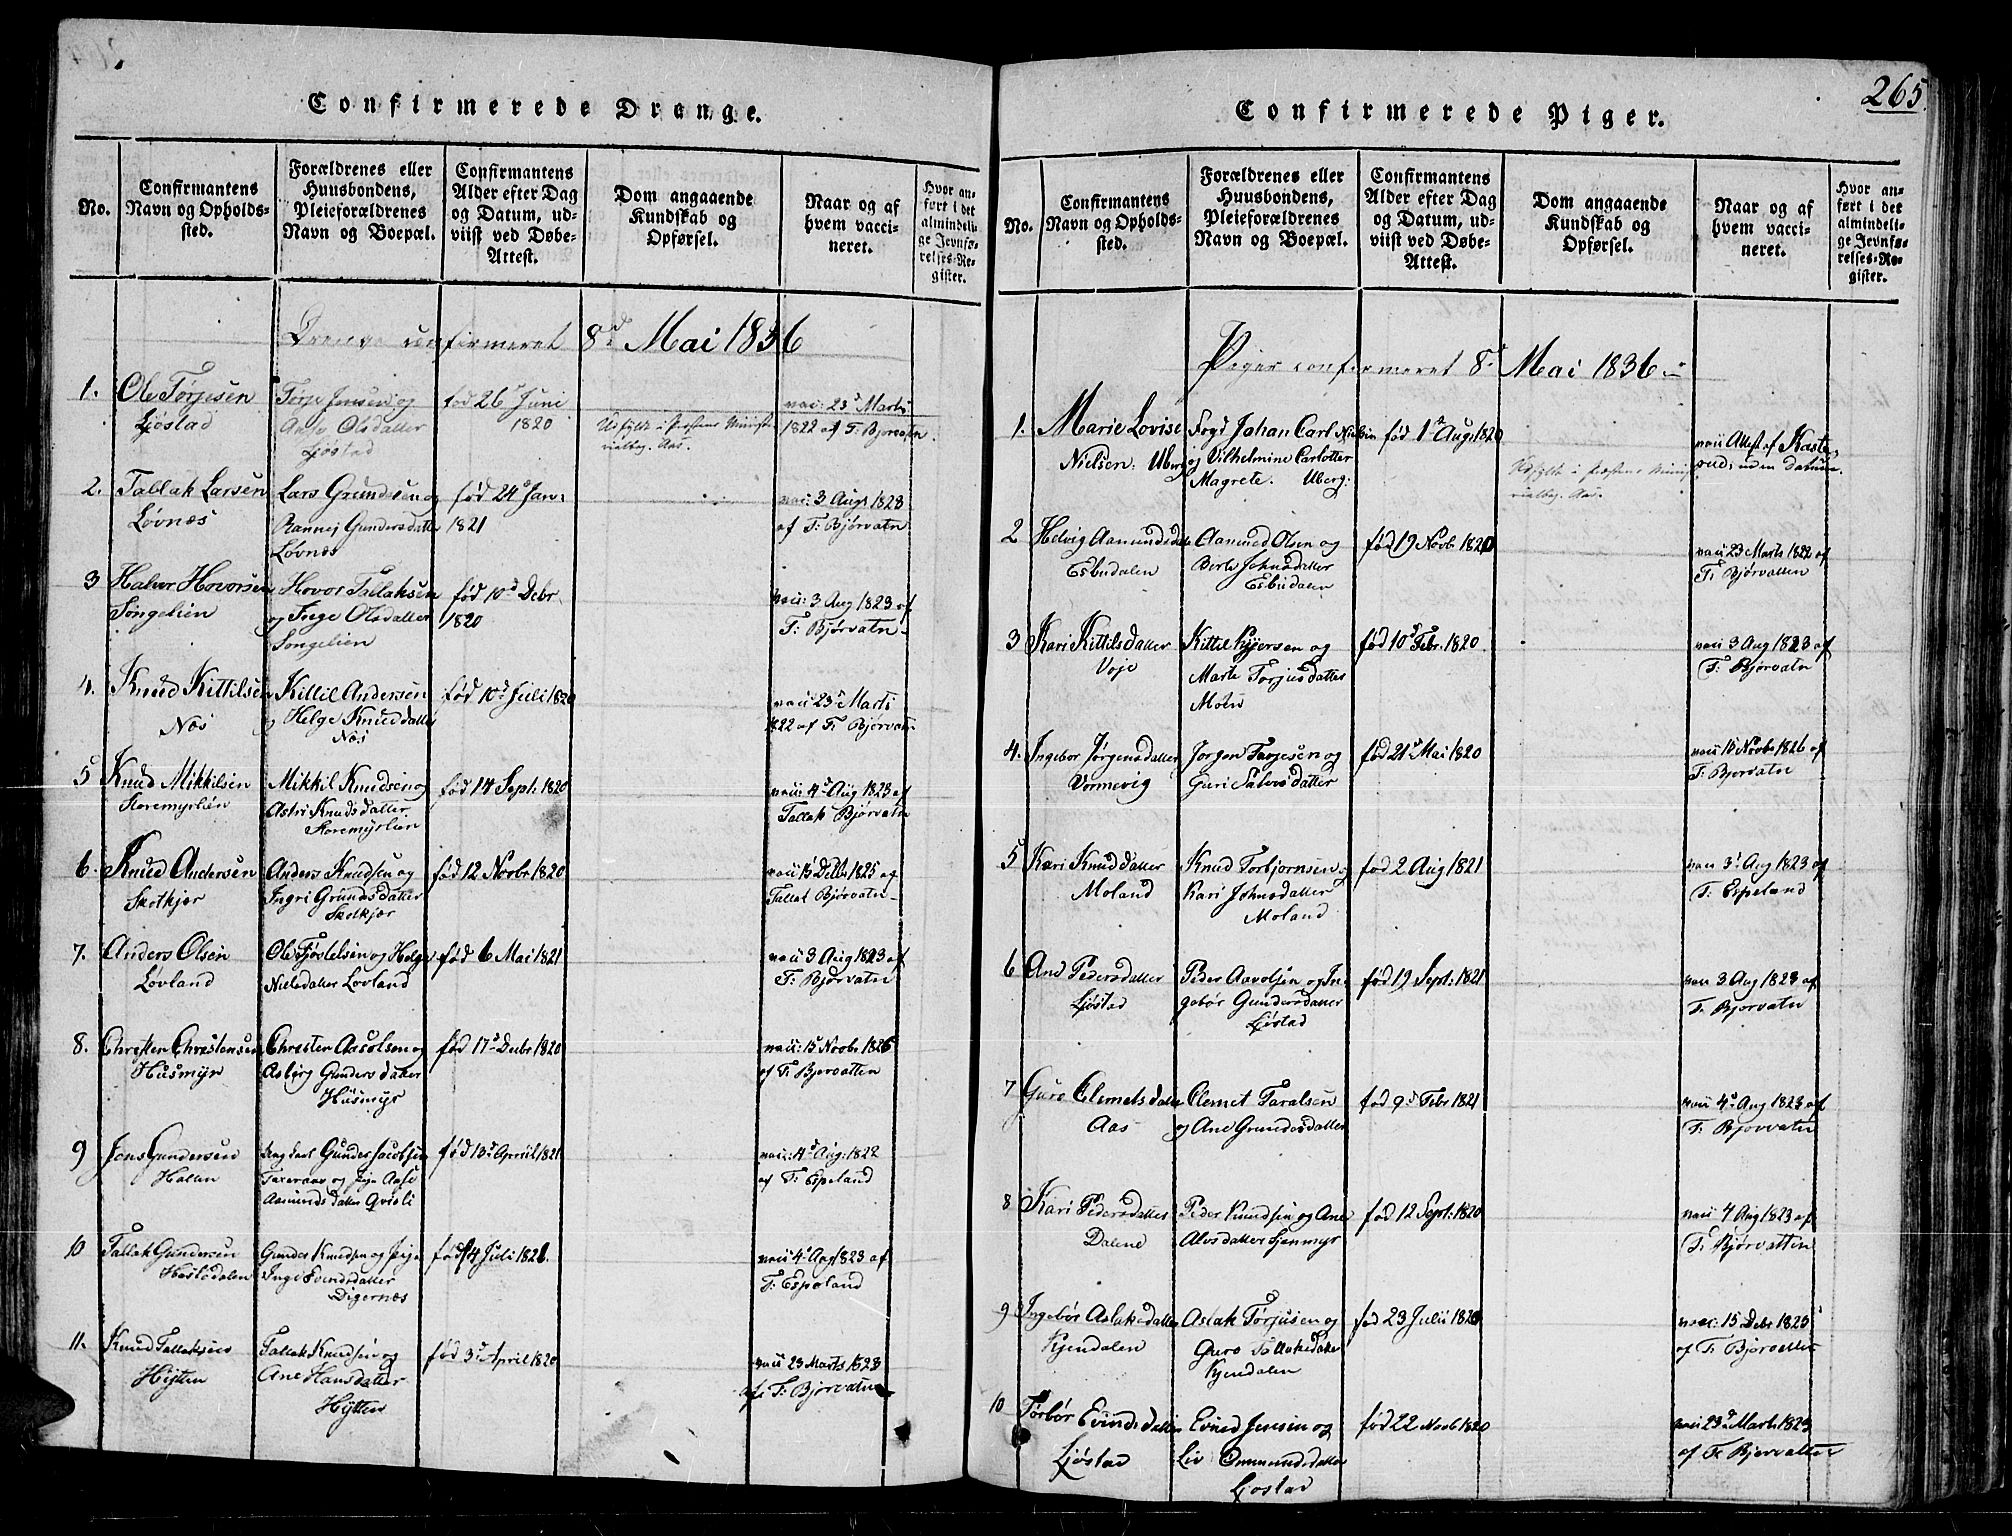 265.
Confirmerede Drenge.
No.
Confirmantens
Navn og Opholds-
sted.
Forældrenes eller
Huusbondens,
Pleieforældrenes
Navn og Boepæl.
Confirmantens
Alder efter Dag
og Datum, ud-
viist ved Døbe-
Attest.
Dom angaaende
Kundskab og
Opførsel.
Naar og af
hvem vacci-
neret.
Hvor an-
ført i det
almindeli-
ge Jevnfø-
relses-Re-
gister.
Drenge confirmeret 8d Mai 1836
1. Ole Tørjesen
Ljøstad
Torje Jensen og
Ane Olsdatter
Ljøstad
fød 26d Juni
1820
Udfyldt i præstens Minist
rialbog. Aas.
vac: 23d Marts
1822 af T: Bjorvatn
2. Tallak Larsen
Løvnæs
Lars Gundersen og
Rannej Gundersdatter
Løvnæs
fød 24d Jan:
1821
vac: 3 Augs 1823
af T: Bjørvatn
3 Halvor Hovorsen
Songelien
Hovor Tallaksen
og Inge Olsdatter
Songelien
fød 10d Debr
1820
vac: 3 Aug 1823 af
T: Bjørvatn
4. Knud Kittilsen
Næs
Kittil Andersen
og Helge Knuddatter
Næs
fød 10d Juli 1820
vac: 23d Marts
1822 af T: Bjørvatn
5 Knud Mikkilsen
Storemyrlien
Mikkil Knudsen og
Astri Knudsdatter
Storemyrlien
fød 14 Sept: 1820
vac: 4d Aug 1823 af
Tallak Bjørvatn
6. Knud Andersen
Skotkjær
Anders Knudsen og
Ingri Grundsdatter
Skotkjær
fød 12 Novbr 1820
vac 15 Debr 1825 af
Tallak Bjørvatn
7. Anders Olsen
Løvland
Ole Tjøstelsen og Helge
Nielsdatter Lovland
fød 6 Mai 1821
vac 3 Aug 1823 af
T: Bjørvatn
8. Christen Christensen
Husmyr
Christen Aasolsen og
Asbjørg Gundersdatter
Husmyr
fød 17d Debr 1820
vac: 15 Novbr 1826
af T: Bjervatten
9 Jens Gundersen
Hallen
Ungkarl Gunder Jacobsen
Taxeraas og Pige Aase
Aamundsdatter Qvisli
fød 13d April 1821
vac: 4d Aug: 1822
af T: Espeland
10 Tallak Gundersen
Hostedalen
Gunder Knudsen og Pige
Inge Evindsdatter
Digernæs
fød 14 Juli 1821.
vac 4d Aug 1823 af
T: Espeland
11. Knud Tallaksen
Hytten
Tallak Knudsen og
Ane Hansdatter
Hytten
fød 3d April 1820
vac 23 Marts 1823
af T: Bjørvatn
Confirmerede Piger.
No.
Confirmantens
Navn og Opholds-
sted.
Forældrenes eller
Huusbondens,
Pleieforældrenes
Navn og Boepæl.
Confirmantens
Alder efter Dag
og Datum, ud-
viist ved Døbe-
Attest.
Dom angaaende
Kundskab og
Opførsel.
Naar og af
hvem vacci-
neret.
Hvor an-
ført i det
almindeli-
ge Jevnfø-
relses-Re-
gister.
Piger confirmeret 8d Mai 1836
1. Marie Lovise
Nielsen. Uberg
Fogd Johan Carl Nielsen
og Vilhelmine Carlotter
Magrete. Uberg:
fød 1ste Aug 1820
Udfyldt i præstens Minist
rialbog. Aas.
vacc Attest af Kaste
rud, uden datum
2 Helvig Aamundsdatter
Esbudalen
Aamund Olsen og
Berte Johnsdatter
Esbudalen
fød 19 Novbr 1820
vac 23 Marts 1822 af
T: Bjørvatten
3 Kari Kittilsdatter
Voje
Kittil Kjøersen og
Marte Torjusdatter
Moen
fød 10d Febr. 1820
vac 3 Aug 1823 af
T: Bjørvatn
4. Ingebor Jørgensdatter
Vormevig
Jorgen Torjesen og
Guri Salvesdatter
fød 21d Mai 1820
vac 15 Novbr 1826 af
T: Bjorvatn
5 Kari Knuddatter
Moland
Knud Torbjornsen og
Kari Johnsdatter
Moland
fød 2 Aug 1821
vac 3d Aug 1823 af
T: Espeland
6 Ane Pedersdatter
Ljøstad
Peder Aavolsen og In
gebór Gundersdatter
Ljøstad
fød 19 Sept: 1821
vac 3 Aug 1823 af
T: Bjorvatn
7 Guro Clemetsdatter
Aas
Clemet Taralsen
og Ane Grundesdatter
fød 9d Febr 1821
vac 4d Aug 1823 af
T: Bjørvatn
8 Kari Pedersdatter
Dalene
Peder Knudsen og Ane
Alvsdatter Sjenmyr
fød 12 Sept: 1820
vac 4 Aug 1823 af
T: Bjørvatten
9 Ingebór Aslaksdatter
Kjendalen
Aslak Torjusen og
Guro Tallaksdatter
Kjendalen
fød 23 Julii 1820
vac: 15 Debr 1825
af T: Bjorvatten
10 Torbór Evindsdatter
Ljøstad
Evind Jensen og
Liv Ommundsdatter
Ljøstad
fød 22 Novb 1820
vac 23d Marts 1823
af T: Bjervatten